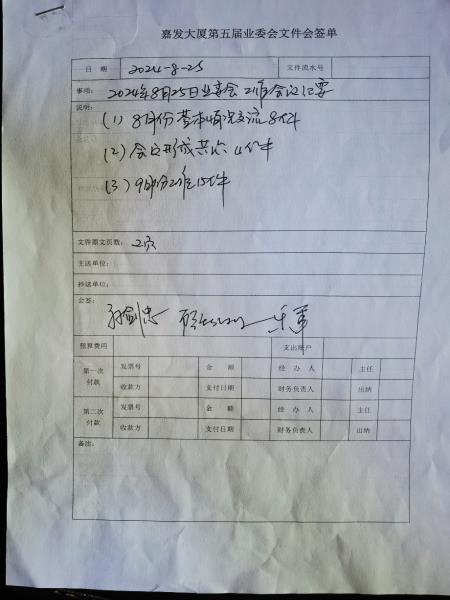 嘉发大厦第五届业委会文件会签单
日 期 2024-8-25 文件流水号
事项: 2024年8月25日业委会工作会议记要
说明:
(1) 8月份基本情况交流8件
(2) 会议形成共识4件
(3) 9月份工作15件
文件原文页数: 2页
主送单位:
抄送单位:
会签:
预算费用 支出账户
第一次付款 发票号 金 额 经 办 人 主任
收款方 支付日期 财务负责人 出纳
第二次付款 发票号 金 额 经 办 人 主任
收款方 支付日期 财务负责人 出纳
备注: